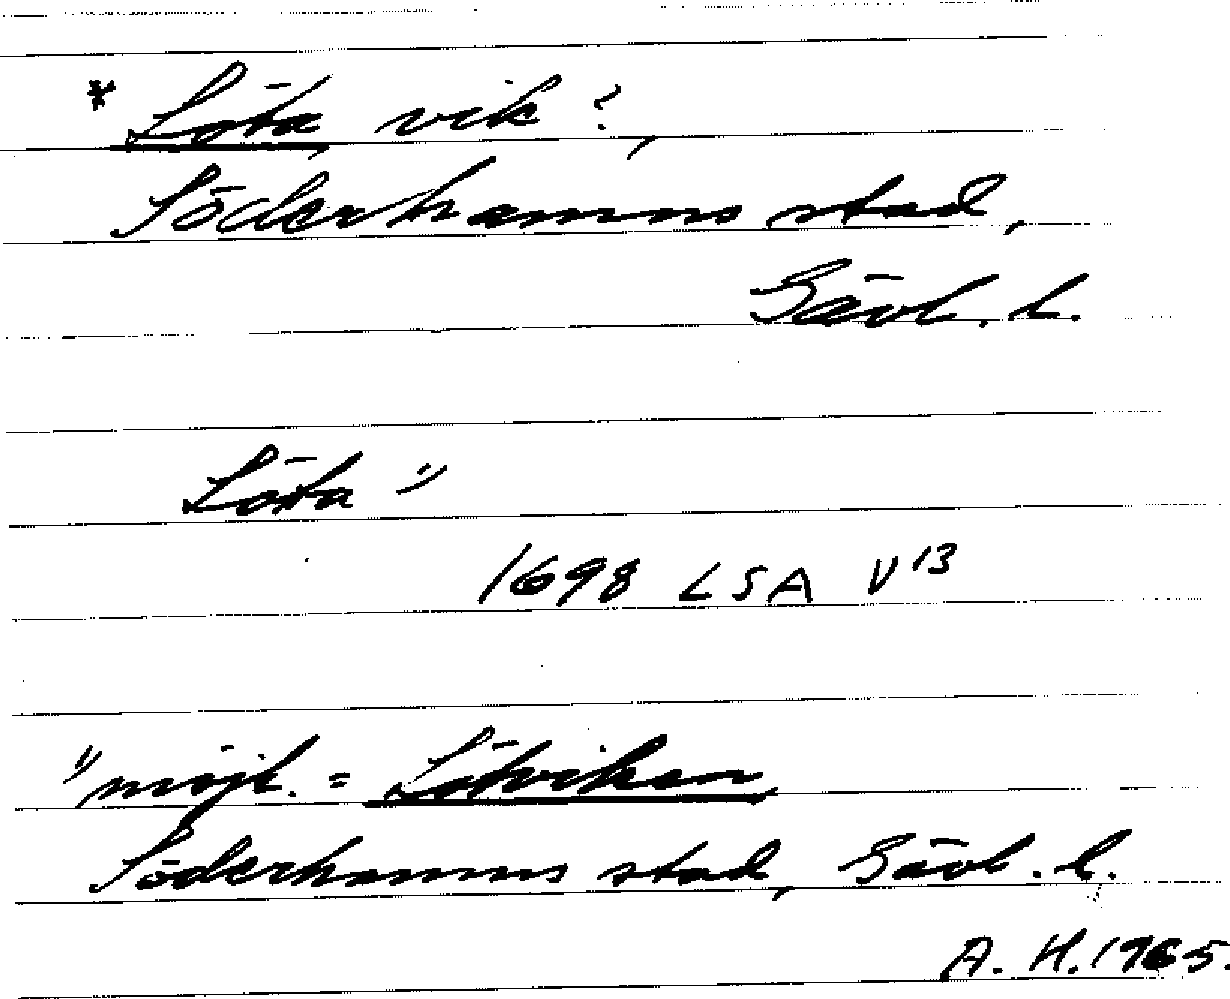 * Löta vik?,
Söderhamns stad,
Gävl. l.
Löta "
1698 LSA V 13
" möjl. = Lötviken,
Söderhamns stad, Gävl. l.
A. H. 1965.